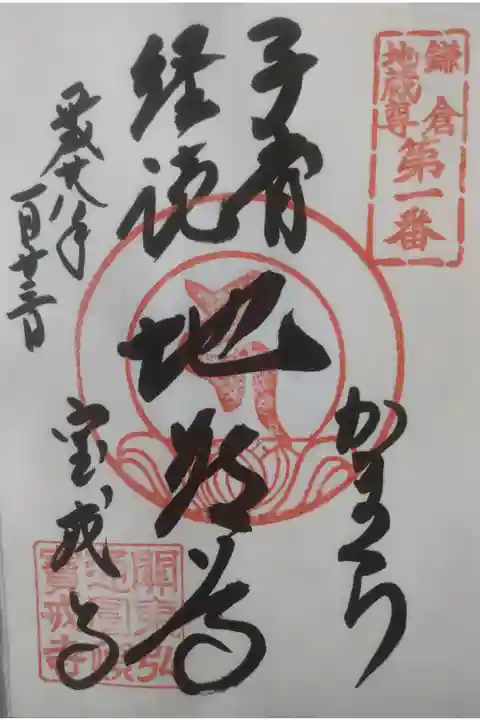 鎌倉
地蔵尊
第一番
子育
経読
地蔵尊
かまくら
平成十八年
一月十三日
宝戒寺
關東弘
寶戒寺